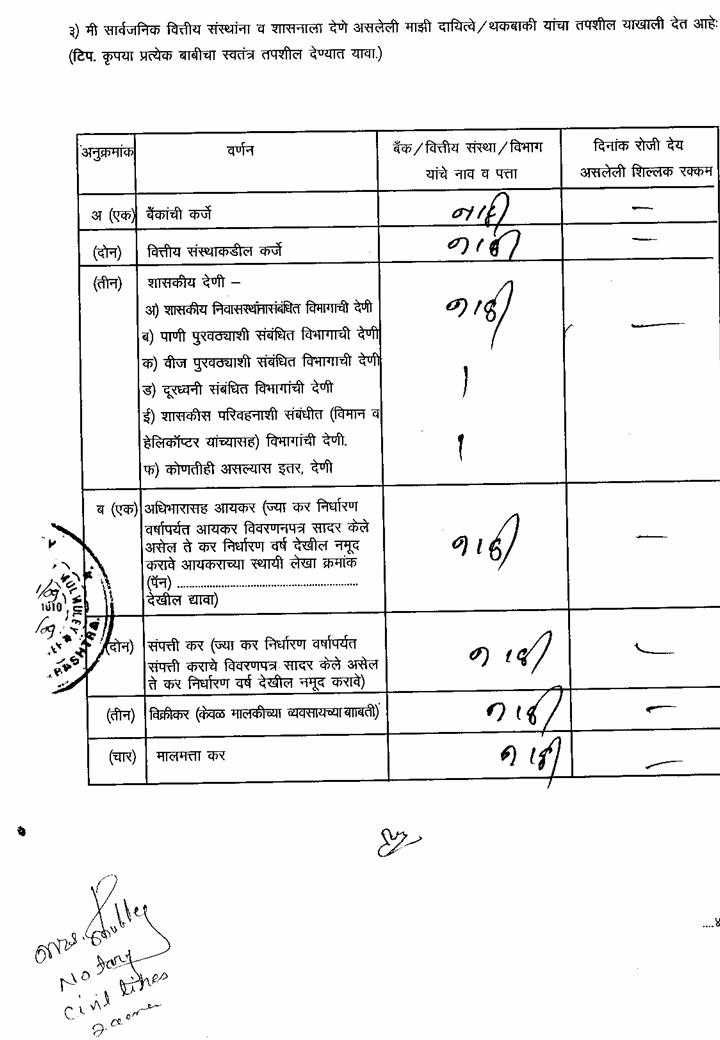 ३) मी सार्वजनिक वित्तीय संस्थांना व शासनाला देणे असलेली माझी दायित्वे/थकबाकी यांचा तपशील याखाली देत आहेः
(टिप. कृपया प्रत्येक बाबीचा स्वतंत्र तपशील देण्यात यावा.)
अनुक्रमांक वर्णन बँक/वित्तीय संस्था/विभाग यांचे नाव व पत्ता दिनांक रोजी देय असलेली शिल्लक रक्कम
अ (एक) बँकांची कर्जे नाही —
(दोन) वित्तीय संस्थाकडील कर्जे नाही —
(तीन) शासकीय देणी – नाही —
अ) शासकीय निवासस्थांनासंबंधित विभागाची देणी
ब) पाणी पुरवठ्याशी संबंधित विभागाची देणी
क) वीज पुरवठ्याशी संबंधित विभागाची देणी
ड) दूरध्वनी संबंधित विभागांची देणी
ई) शासकीस परिवहनाशी संबंधीत (विमान व
हेलिकॉप्टर यांच्यासह) विभागांची देणी.
फ) कोणतीही असल्यास इतर, देणी
ब (एक) अधिभारासह आयकर (ज्या कर निर्धारण नाही —
वर्षापर्यत आयकर विवरणनपत्र सादर केले
असेल ते कर निर्धारण वर्ष देखील नमूद
करावे आयकराच्या स्थायी लेखा क्रमांक
(पॅन) ..........................................
देखील द्यावा)
(दोन) संपत्ती कर (ज्या कर निर्धारण वर्षापर्यत नाही —
संपत्ती कराचे विवरणपत्र सादर केले असेल
ते कर निर्धारण वर्ष देखील नमूद करावे)
(तीन) विक्रीकर (केवळ मालकीच्या व्यवसायच्या बााबती) नाही —
(चार) मालमत्ता कर नाही —
1010
MUL MULEY
RASHTRA.
Notary
civil lines
....४